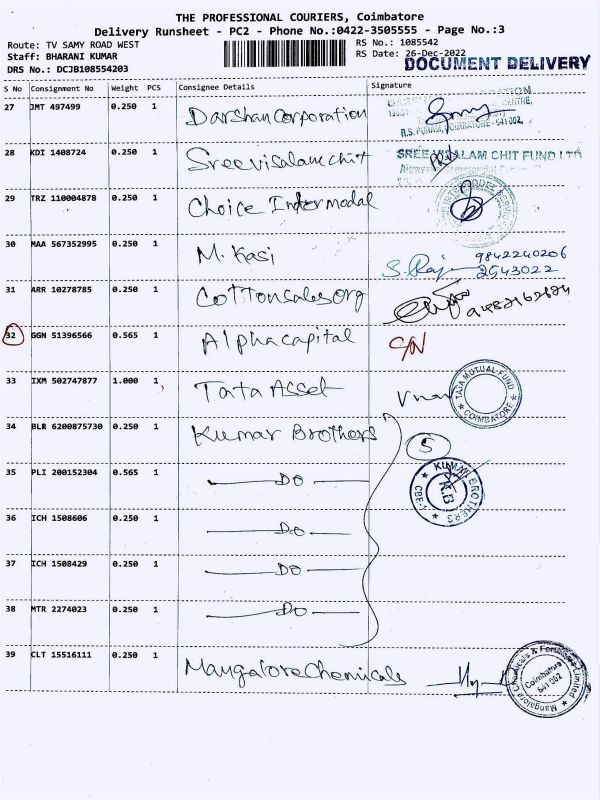 THE PROFESSIONAL COURIERS, Coimbatore
Delivery Runsheet - PC2 - Phone No.:0422-3505555 - Page No.:3
Route: TV SAMY ROAD WEST RS No.: 1085542
Staff: BHARANI KUMAR RS Date: 26-Dec-2022
DRS No.: DCJB108554203 DOCUMENT DELIVERY
S No Consignment No Weight PCS Consignee Details Signature
27 JMT 497499 0.250 1 Darshan Corporation
R.S. PURAM, COIMBATORE - 641 002.
28 KDI 1408724 0.250 1 Sree visalam chit SREE VISALAM CHIT FUND LTD
29 TRZ 110004878 0.250 1 Choice Intermodal
30 MAA 567352995 0.250 1 M. Kasi S. Raj 9842240206
2543022
31 ARR 10278785 0.250 1 Cotton sales org
32 GGN 51396566 0.565 1 Alpha capital
33 IXM 502747877 1.000 1 Tata Asset TATA MUTUAL FUND COIMBATORE
34 BLR 6200875730 0.250 1 Kumar Brothers 5
35 PLI 200152304 0.565 1 DO KUMAR BROTHERS CBE-1 K.B
36 ICH 1508606 0.250 1 DO
37 ICH 1508429 0.250 1 DO
38 MTR 2274023 0.250 1 DO
39 CLT 15516111 0.250 1 Mangalore Chemicals Mangalore Chemicals & Fertilisers Limited Coimbatore 641 002